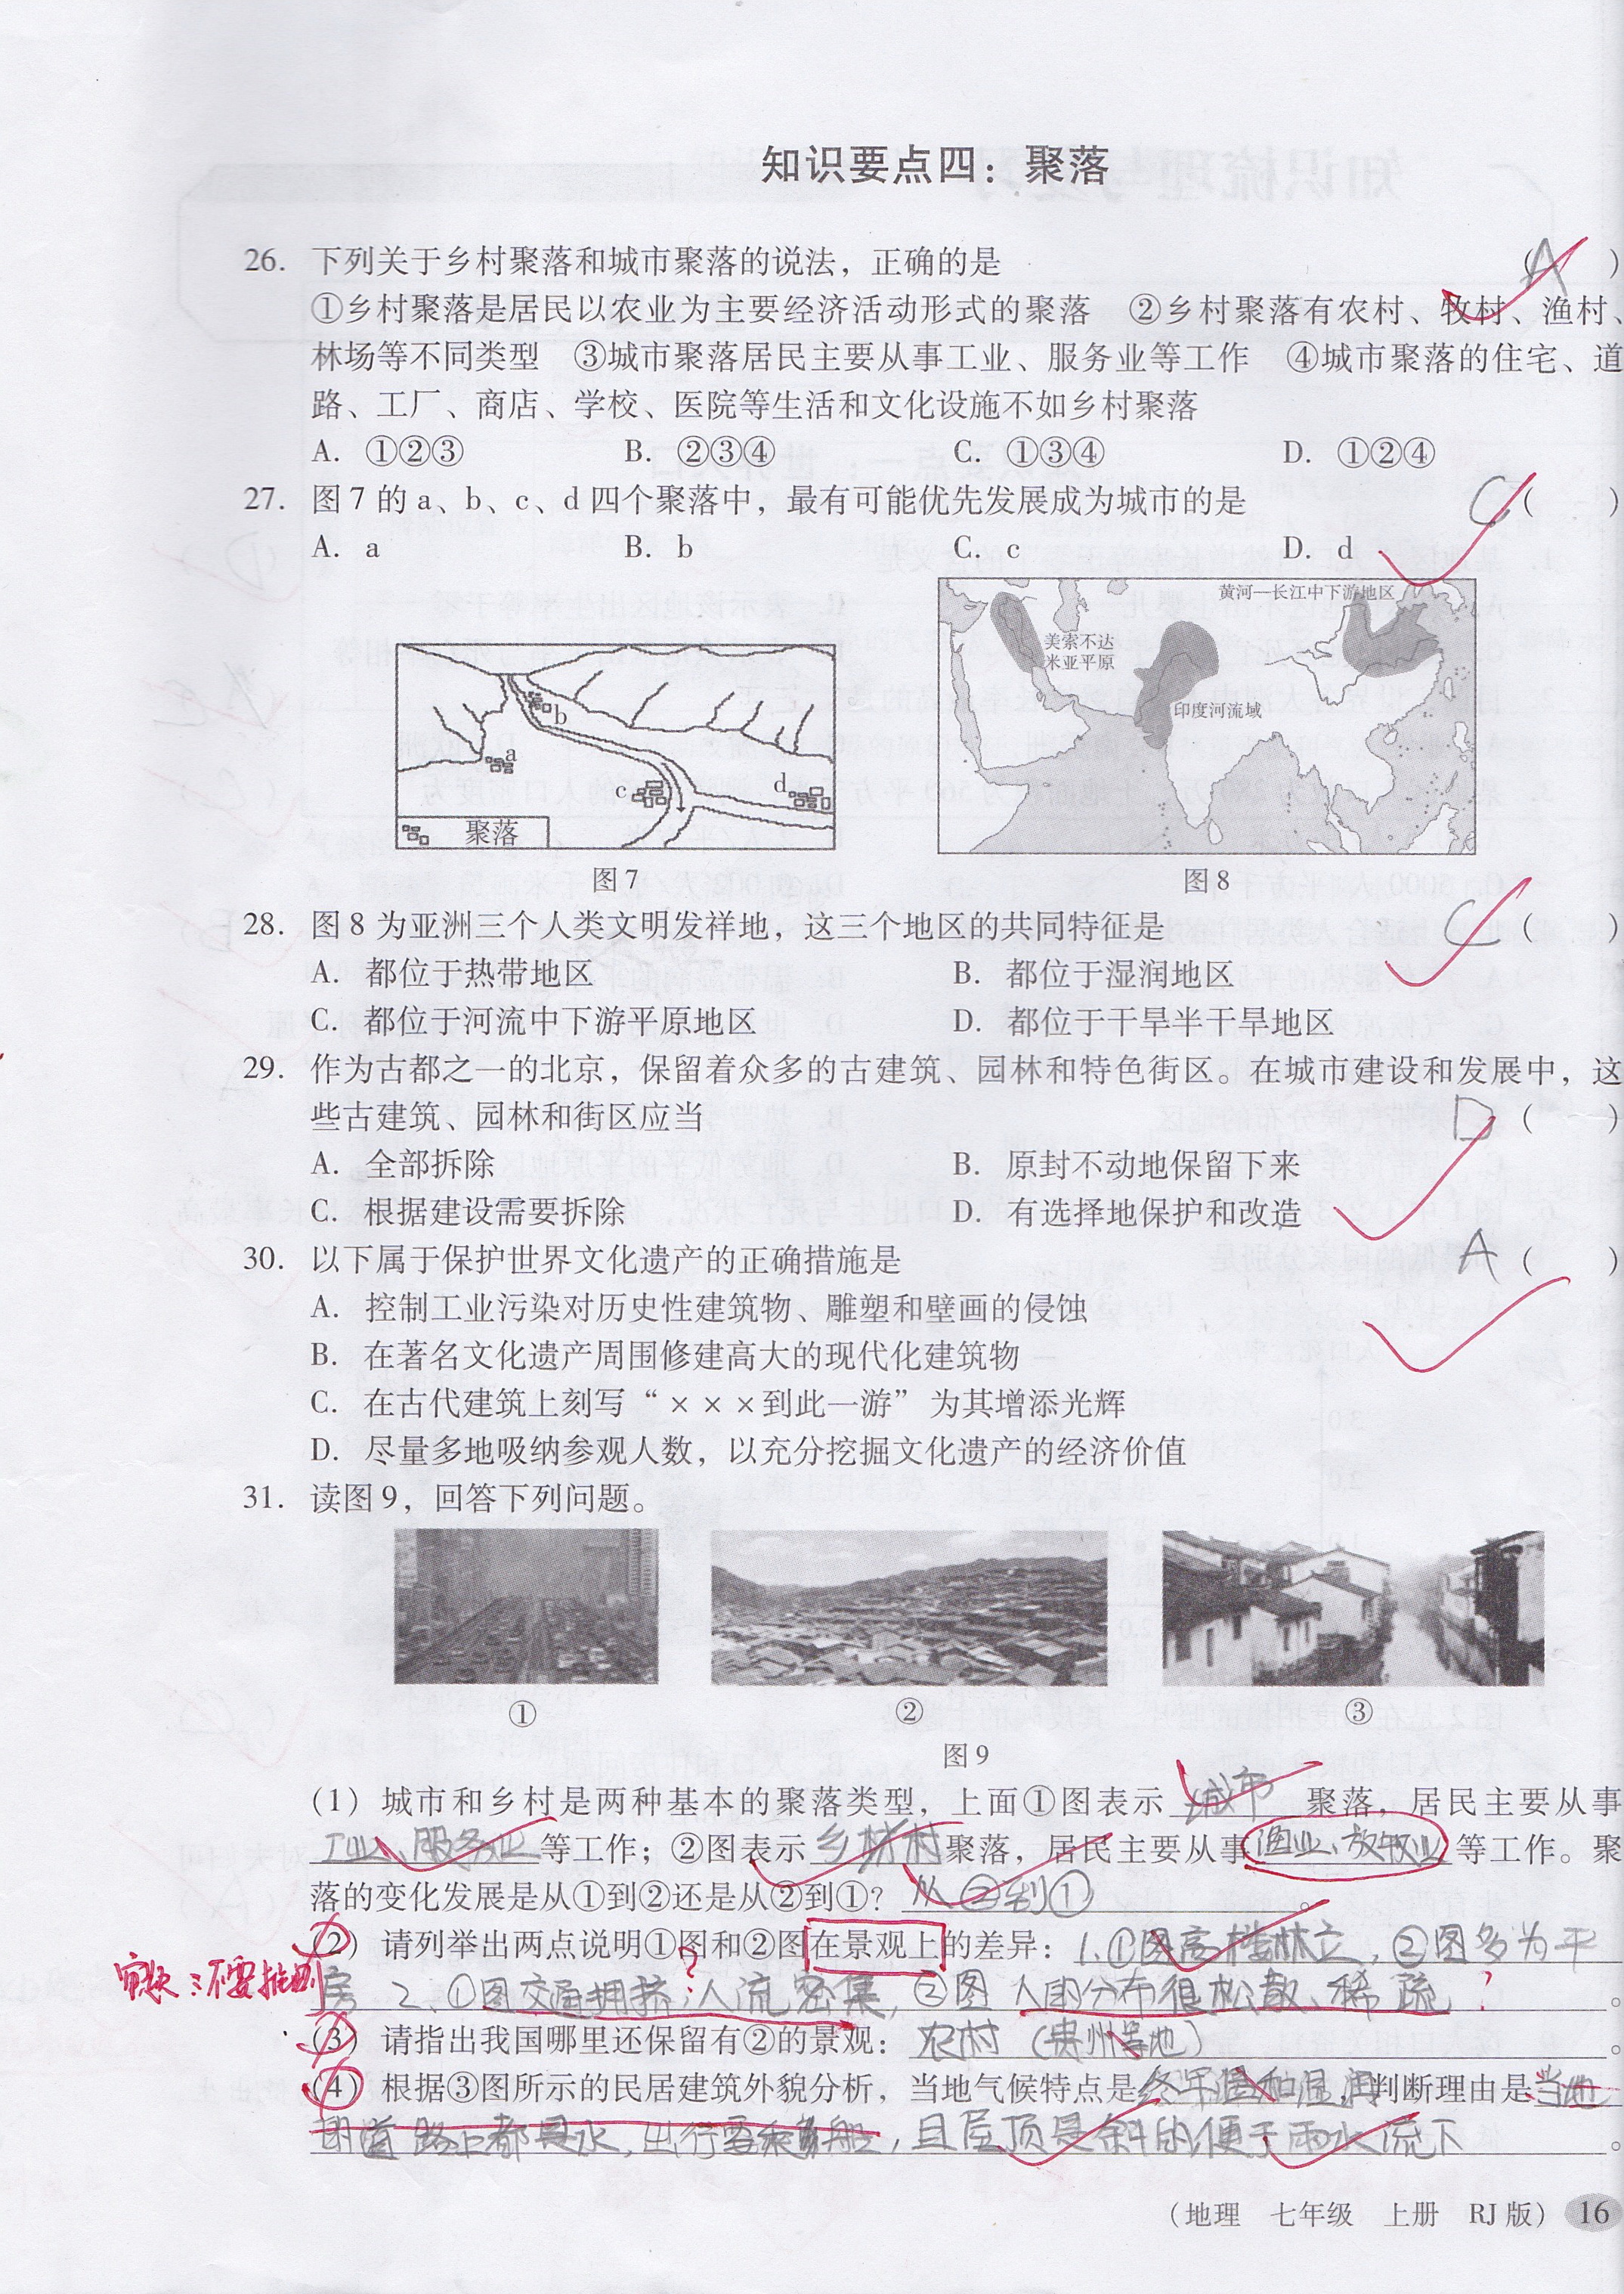 知识要点四：聚落
26. 下列关于乡村聚落和城市聚落的说法，正确的是 （A）
①乡村聚落是居民以农业为主要经济活动形式的聚落 ②乡村聚落有农村、牧村、渔村、
林场等不同类型 ③城市聚落居民主要从事工业、服务业等工作 ④城市聚落的住宅、道
路、工厂、商店、学校、医院等生活和文化设施不如乡村聚落
A. ①②③ B. ②③④ C. ①③④ D. ①②④
27. 图 7 的 a、b、c、d 四个聚落中，最有可能优先发展成为城市的是 C（ ）
A. a B. b C. c D. d
黄河—长江中下游地区
美索不达
米亚平原
印度河流域
b
a
c
d
聚落
图 7 图 8
28. 图 8 为亚洲三个人类文明发祥地，这三个地区的共同特征是 C（ ）
A. 都位于热带地区 B. 都位于湿润地区
C. 都位于河流中下游平原地区 D. 都位于干旱半干旱地区
29. 作为古都之一的北京，保留着众多的古建筑、园林和特色街区。在城市建设和发展中，这
些古建筑、园林和街区应当 D（ ）
A. 全部拆除 B. 原封不动地保留下来
C. 根据建设需要拆除 D. 有选择地保护和改造
30. 以下属于保护世界文化遗产的正确措施是 A（ ）
A. 控制工业污染对历史性建筑物、雕塑和壁画的侵蚀
B. 在著名文化遗产周围修建高大的现代化建筑物
C. 在古代建筑上刻写“×××到此一游”为其增添光辉
D. 尽量多地吸纳参观人数，以充分挖掘文化遗产的经济价值
31. 读图 9，回答下列问题。
① ② ③
图 9
(1) 城市和乡村是两种基本的聚落类型，上面①图表示 城市 聚落，居民主要从事
工业、服务业等工作；②图表示 乡村 聚落，居民主要从事渔业、放牧业等工作。聚
落的变化发展是从①到②还是从②到①？从②到①。
(2) 请列举出两点说明①图和②图在景观上的差异：1.①图高楼林立，②图多为平
房 2、①图交通拥挤，人流密集，②图 人的分布很松散、稀疏 。
?
?
(3) 请指出我国哪里还保留有②的景观：农村（贵州等地）。
(4) 根据③图所示的民居建筑外貌分析，当地气候特点是终年温和湿润，判断理由是当地
道路上都是水，出行要乘船，且屋顶是斜的，便于雨水流下。
（地理 七年级 上册 RJ 版） 16